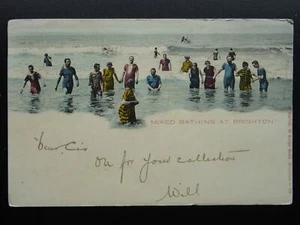 MIXED BATHING AT BRIGHTON
Dear Cis
on for your collection
Will